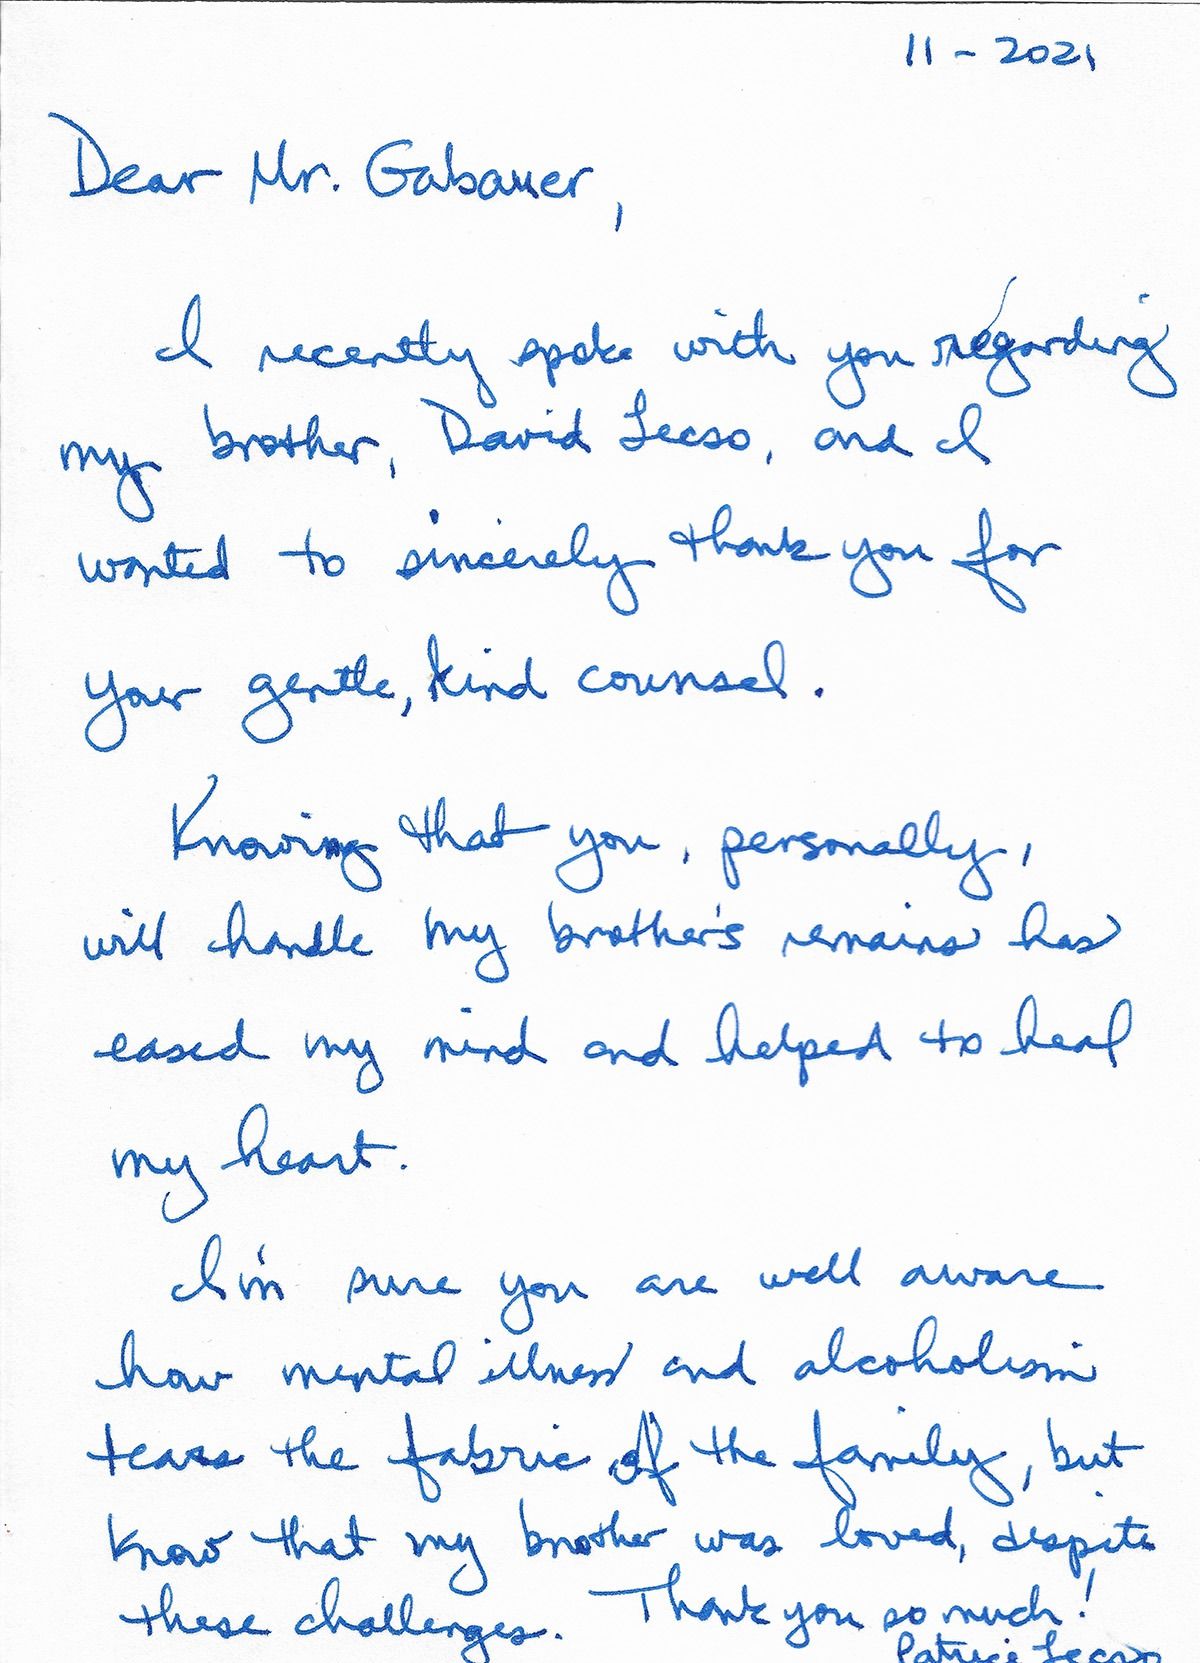 11 - 2021
Dear Mr. Gabauer,
I recently spoke with you regarding
my brother, David Lecso, and I
wanted to sincerely thank you for
your gentle, kind counsel.
Knowing that you, personally,
will handle my brother's remains has
eased my mind and helped to heal
my heart.
I'm sure you are well aware
how mental illness and alcoholism
tears the fabric of the family, but
know that my brother was loved, despite
these challenges. Thank you so much!
Patrice Lecso